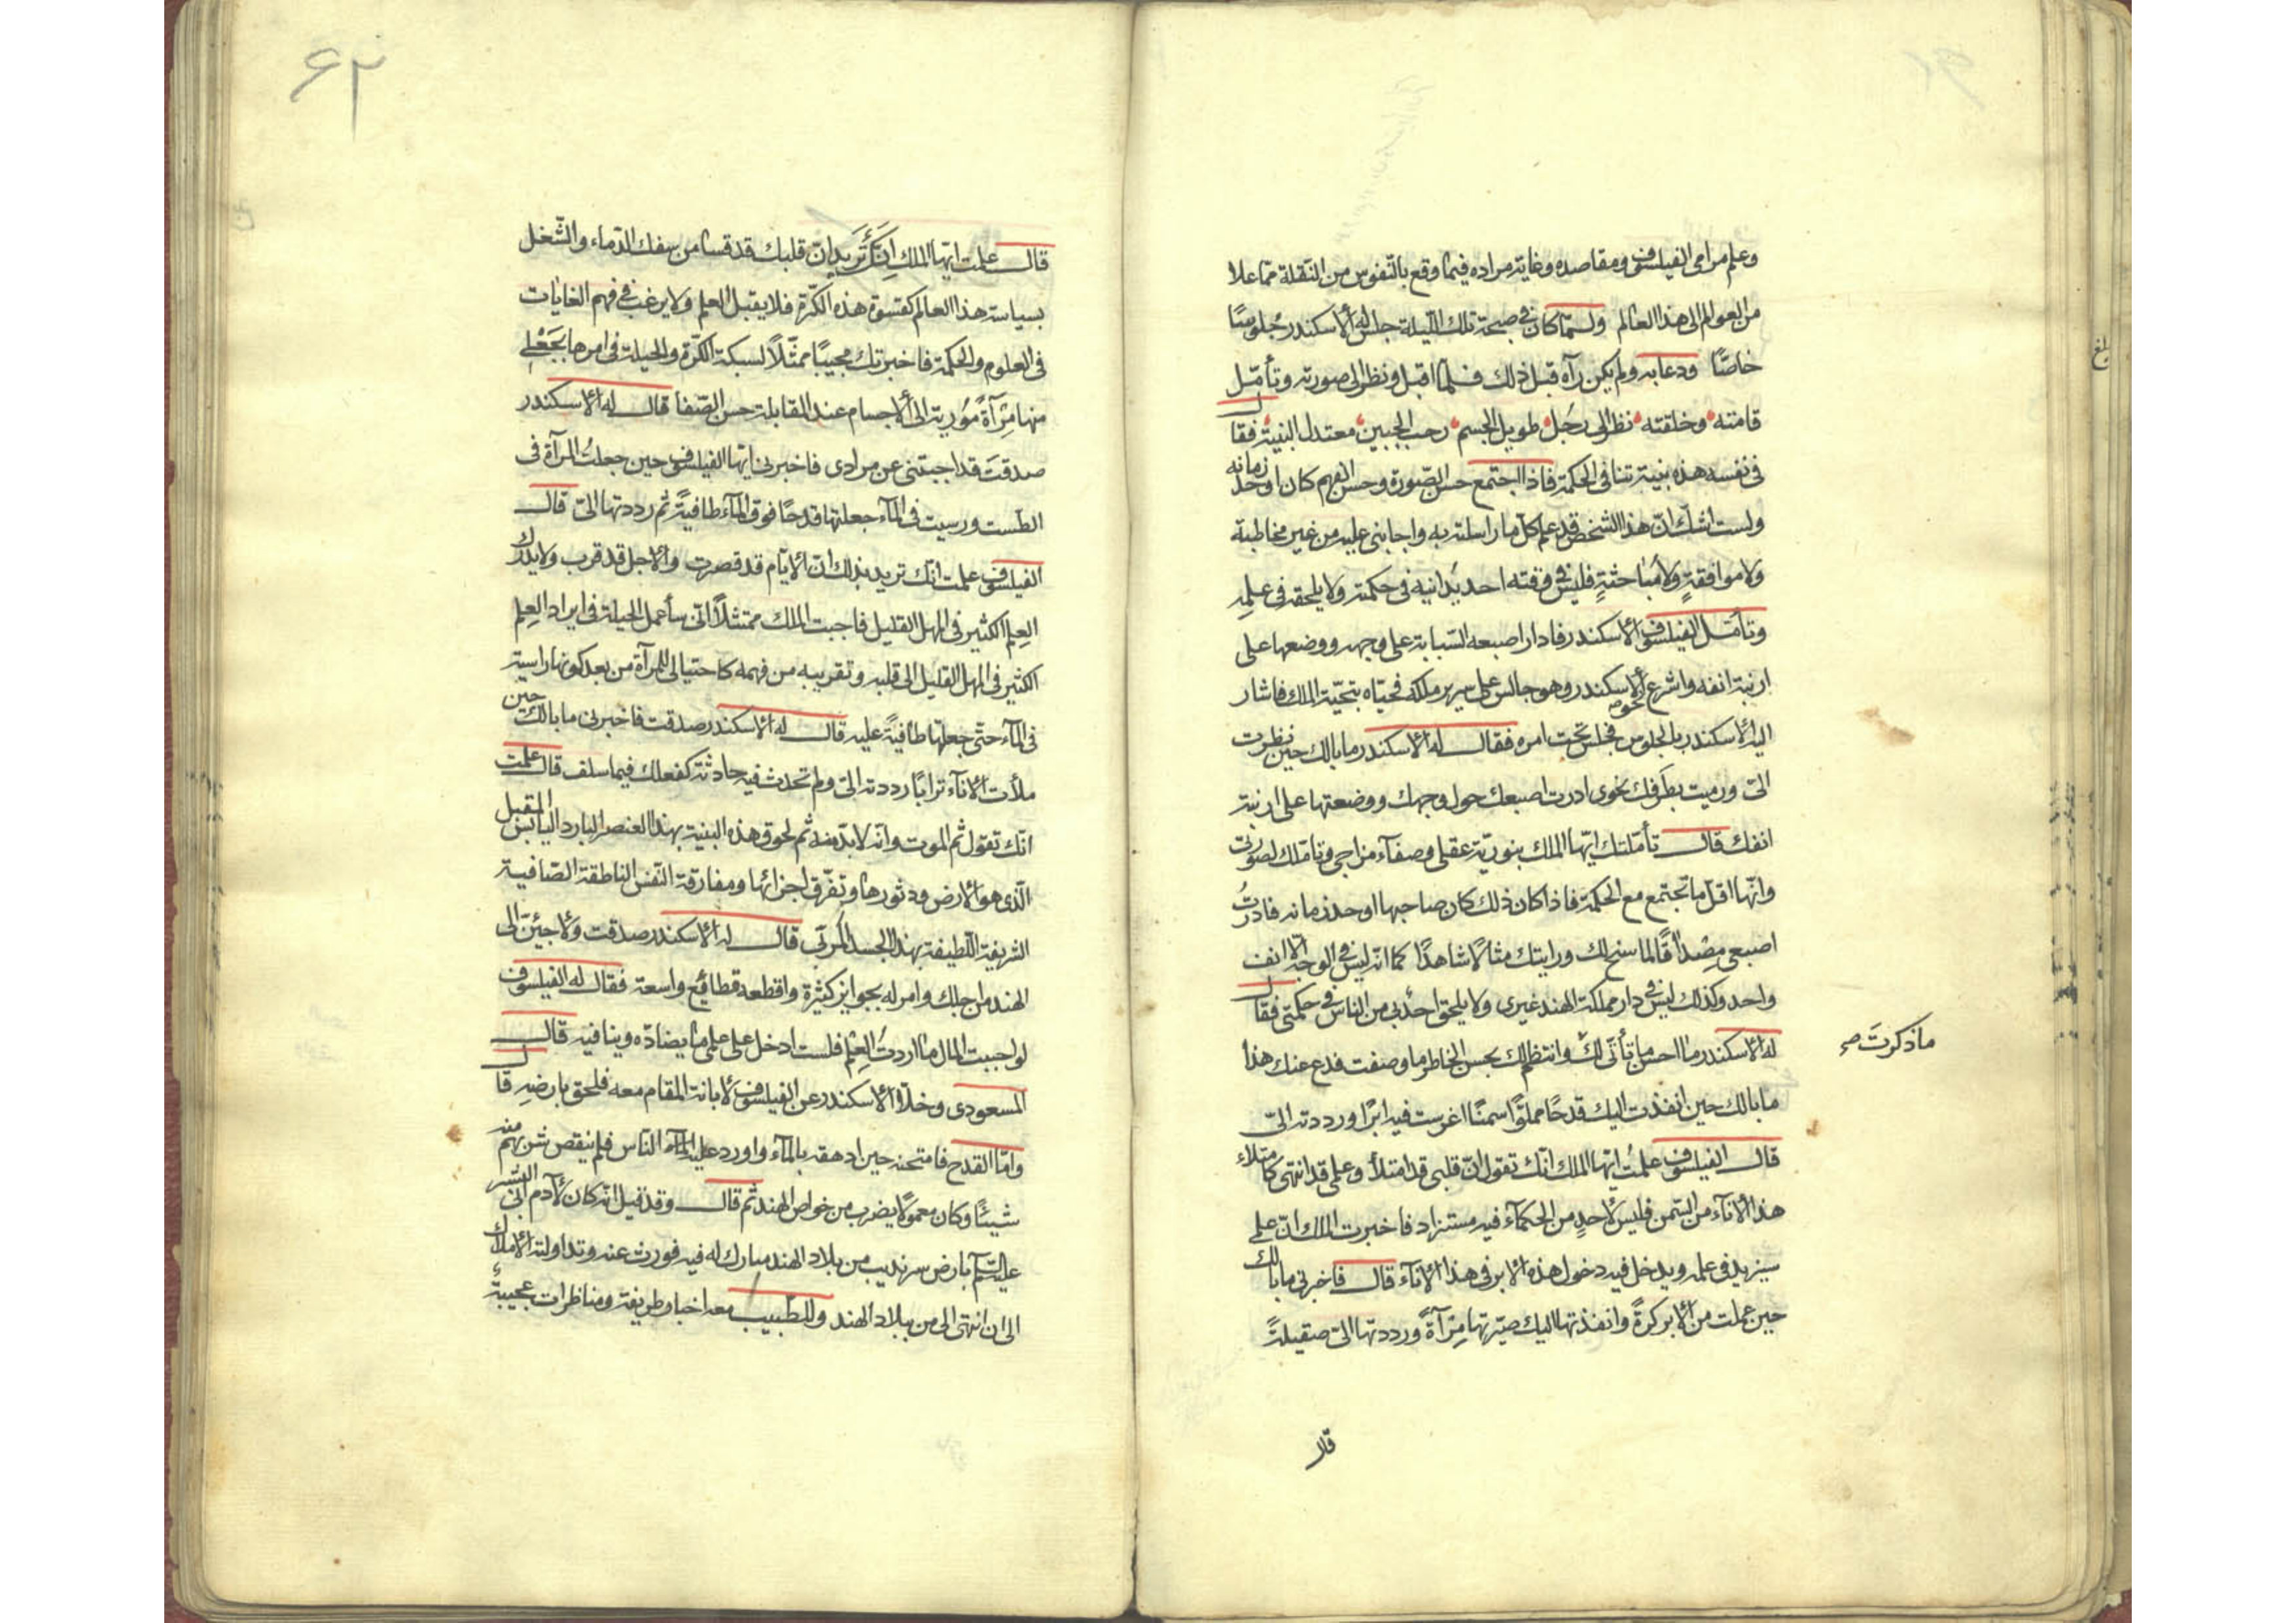 وعلم مرامى الفيلسوف ومقاصده وغاية مراده فيما وقع بالنفوس من النقلة ممّا علا
من العوالم الى هذا العالم ولمّا كان فى صبيحة تلك الليلة جلس له الاسكندر جلوسًا
خاصًّا ودعا به ولم يكن رآه قبل ذلك فلمّا اقبل ونظر الى صورته وتأمّل
قامته وخلقته نظر الى رجل طويل الجسم رحب الجبين معتدل البنية فقال
فى نفسه هذه بنية تنافى الحكمة فاذا اجتمع حسن الصّورة وحسن الفهم كان اوحد زمانه
ولست اشك انّ هذا الشخص قد علم كل ما راسلته به واجابنى عليه من غير مخاطبة
ولا موافقةٍ ولا مُباحثةٍ فليس فى وقته احد يدانيه فى حكمته ولا يلحقه فى علمِه
وتأمّل الفيلسوف الاسكندر فادار اصبعه السّبابة على وجهه ووضعها على
ارنبة انفه واشرع نحو الاسكندر وهو جالس على سرير ملكه فحيّاه بتحيّة الملك فاشار
اليه الاسكندر بالجلوس فجلس تحت امره فقال له الاسكندر ما بالك حين نظرت
الىّ ورميت بطَرفك نحوى ادرت اصبعك حول وجهك ووضعتها على ارنبة
انفك قال تأمّلتك ايّها الملك بنوريّة عقلى وصفآء مزاجى وتأملك لصورتى
وانّها اقلّ ما تجتمع مع الحكمة فاذا كان ذلك كان صاحبها اوحد زمانه فادرتُ
اصبعى مِصْداقًا لما سنح لك ورايتك مثالًا شاهدًا كما انّه ليس فى الوجه الّا انف
واحد وكذلك ليس فى دار مملكة الهند غيرى ولا يلحق احدٌ بى من الناس فى حكمتى فقال
له الاسكندر ما احسن ما تأتّى لك وانتظم لك بحسن الخاطر ما وصفت فدع عنك هذا
ما ذكرتَ صح
ما بالك حين انفذت اليك قدحًا مملوًّا سمنًا اغرست فيه ابرًا ورددته الىّ
قال الفيلسوف علمتُ ايّها الملك انّك تقول انّ قلبى قد امتلأ وعلمى قد انتهى كامتلاء
هذا الانآء من السّمن فليس لاحدٍ من الحكمآء فيه مستزاد فاخبرت الملك انّ علمى
سيزيد فى علمه ويدخل فيه دخول هذه الابر فى هذا الانآء قال فاخبرنى ما بالك
حين عملت من الابر كرةً وانفذتها اليك صيّرتها مِرآةً ورددتها الىّ صقيلةً
قال
۶۲
قال علمت ايّها الملك انّكَ تُريد انّ قلبك قد قسا من سفك الدّماء والشّغل
بسياسة هذا العالم كقسوة هذه الكرّة فلا يقبل العلم ولا يرغب فى فهم الغايات
فى العلوم والحكمة فاخبرتك مجيبًا ممثّلًا لسبكة الكرّة والحيلة فى امرها بجَعْلى
منها مِرآةً مُورِية الى الاجسام عند المقابلة حسن الصّفا قال له الاسكندر
صدقتَ قد اجبتنى عن مرادى فاخبرنى ايّها الفيلسوف حين جعلتُ المرآة فى
الطّست ورسبت فى المآء جعلتها قدحًا فوق المآء طافيةً ثم رددتها الىّ قال
الفيلسوف علمت انّك تريد بذلك انّ الايّام قد قصرت والاجل قد قرب ولا يدرك
العِلم الكثير فى المهل القليل فاجبت الملك ممتثلًا انّى سأعمل الحيلة فى ايراد العِلم
الكثير فى المهل القليل الى قلبه وتقريبه من فهمه كاحتيالى للمرآة من بعد كونها راسبة
فى المآء حتّى جعلتها طافيةً عليه قال له الاسكندر صدقت فاخبرنى ما بالك حين
ملأت الانآء ترابًا رددته الىّ ولم تحدث فيه حادثة كفعلك فيما سلف قال علمت
انّك تقول ثم الموت وانّه لا بدّ منه ثم لحوق هذه البنية بهذا العنصر البارد اليابس الثقيل
الّذى هو الارض ودثورها وتفرّق اجزائها ومفارقة النّفس الناطقة الصّافية
الشريفة اللّطيفة بهذا الجسد المرئى قال له الاسكندر صدقت ولاحسننّ الى
الهند من اجلك وامر له بجوايز كثيرة واقطعه قطائع واسعة فقال له الفيلسوف
لو احببت المال ما اردتُ العِلم فلست ادخل على علمى ما يضادّه وينافيه قال
المسعودى وخلّا الاسكندر عن الفيلسوف لابانة المقام معه فلحق بارضِه قال
وامّا القدح فامتحنه حين ادهقه بالمآء واورد عليه المآء النّاس فلم ينقص شربهم منه
شيئًا وكان معمولًا بضرب من خواص الهند ثم قال وقد قيل انّه كان لآدم ابى البشر
عليه السّلام بارض سرنديب من بلاد الهند مبارك له فيه فورث عنه وتداولته الاملاك
الى ان انتهى الى من ببلاد الهند وللطّبيب معه اخبار طريفة ومناظرات عجيبة